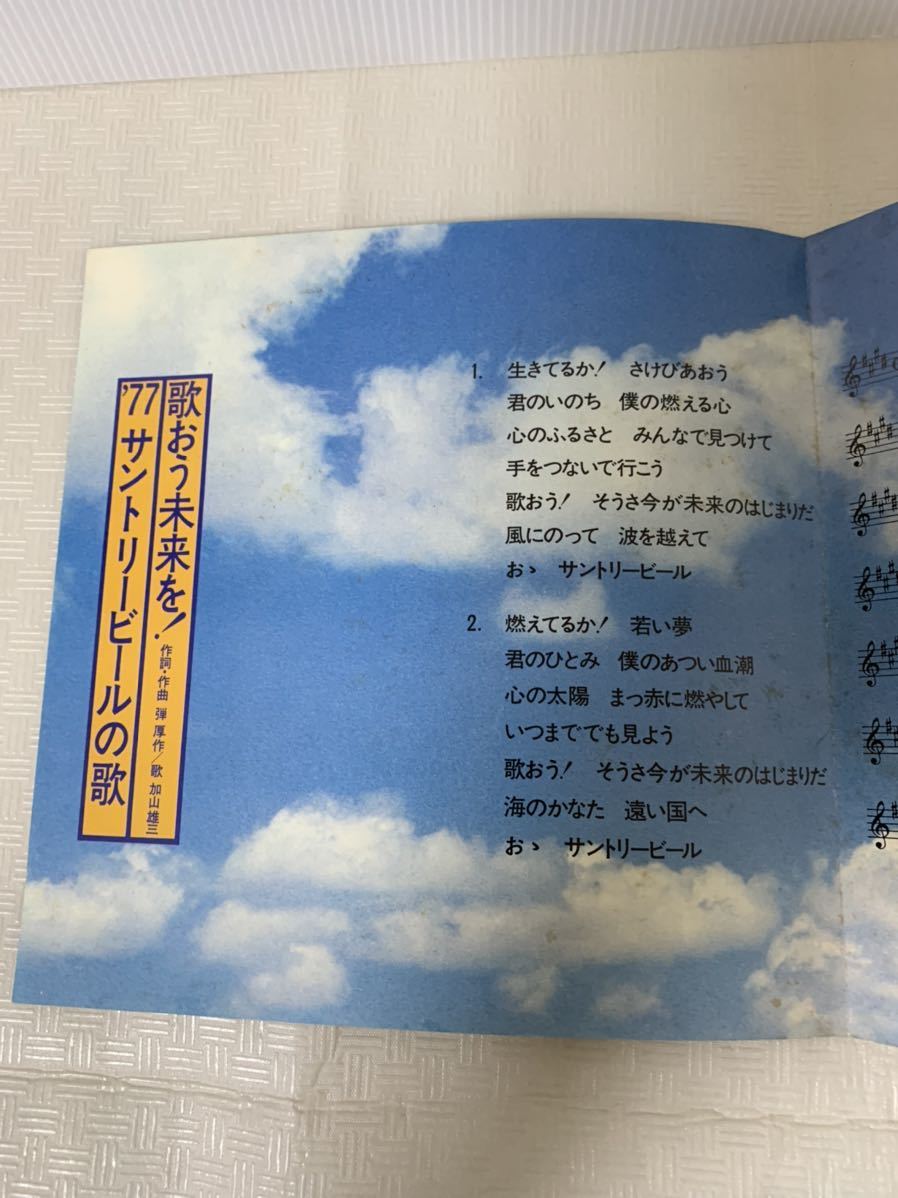 歌おう未来を!
作詞・作曲 弾 厚作/歌 加山雄三
'77 サントリービールの歌
1. 生きてるか! さけびあおう
君のいのち 僕の燃える心
心のふるさと みんなで見つけて
手をつないで行こう
歌おう! そうさ今が未来のはじまりだ
風にのって 波を越えて
おゝ サントリービール
2. 燃えてるか! 若い夢
君のひとみ 僕のあつい血潮
心の太陽 まっ赤に燃やして
いつまででも見よう
歌おう! そうさ今が未来のはじまりだ
海のかなた 遠い国へ
おゝ サントリービール